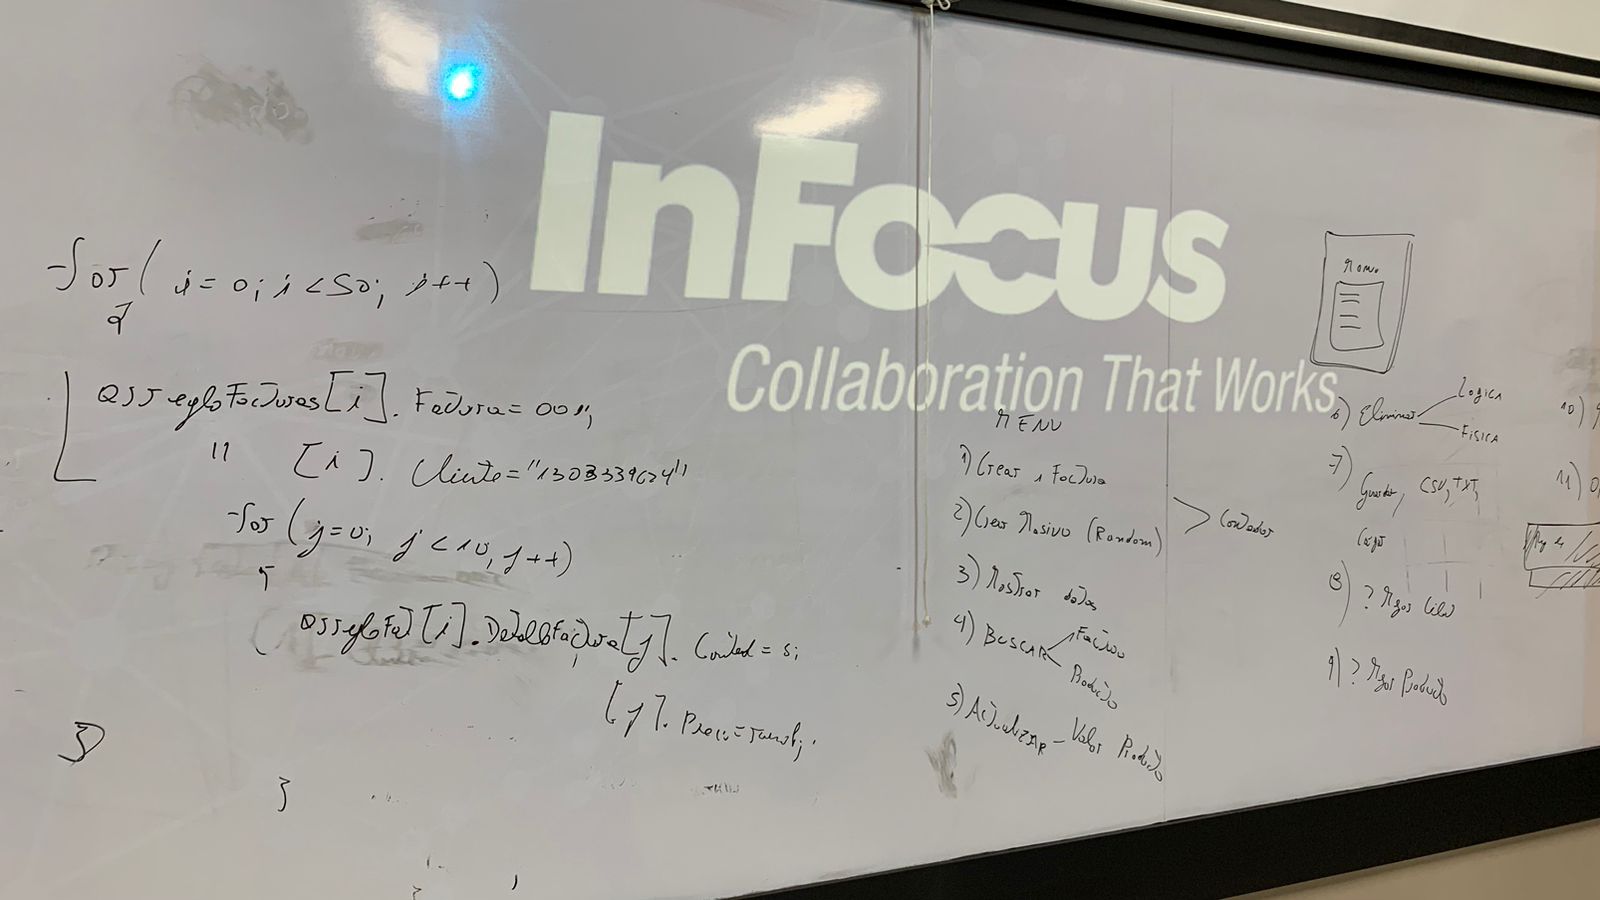 InFocus
Collaboration That Works
for ( i = 0; i < 50; i++ )
{
arregloFacturas[i]. Factura = 001;
" [i]. Cliente = "1303339624"
for (j=0; j<10, j++)
{
arregloFact[i].DetalleFactura[j]. Canted = 5;
[j]. Precio =
}
}
MENU
1) Crear 1 Factura
2) Crear Masivo (Random)
> Contador
3) Mostrar datos
4) BUSCAR Factura
Producto
5) ActualizAR - Valor Producto
Menu
6) Eliminar LOGICA
FISICA
7) Guardar, CSV, TXT,
8) ? Mejor Client
9) ? Mejor Producto
10)
11)